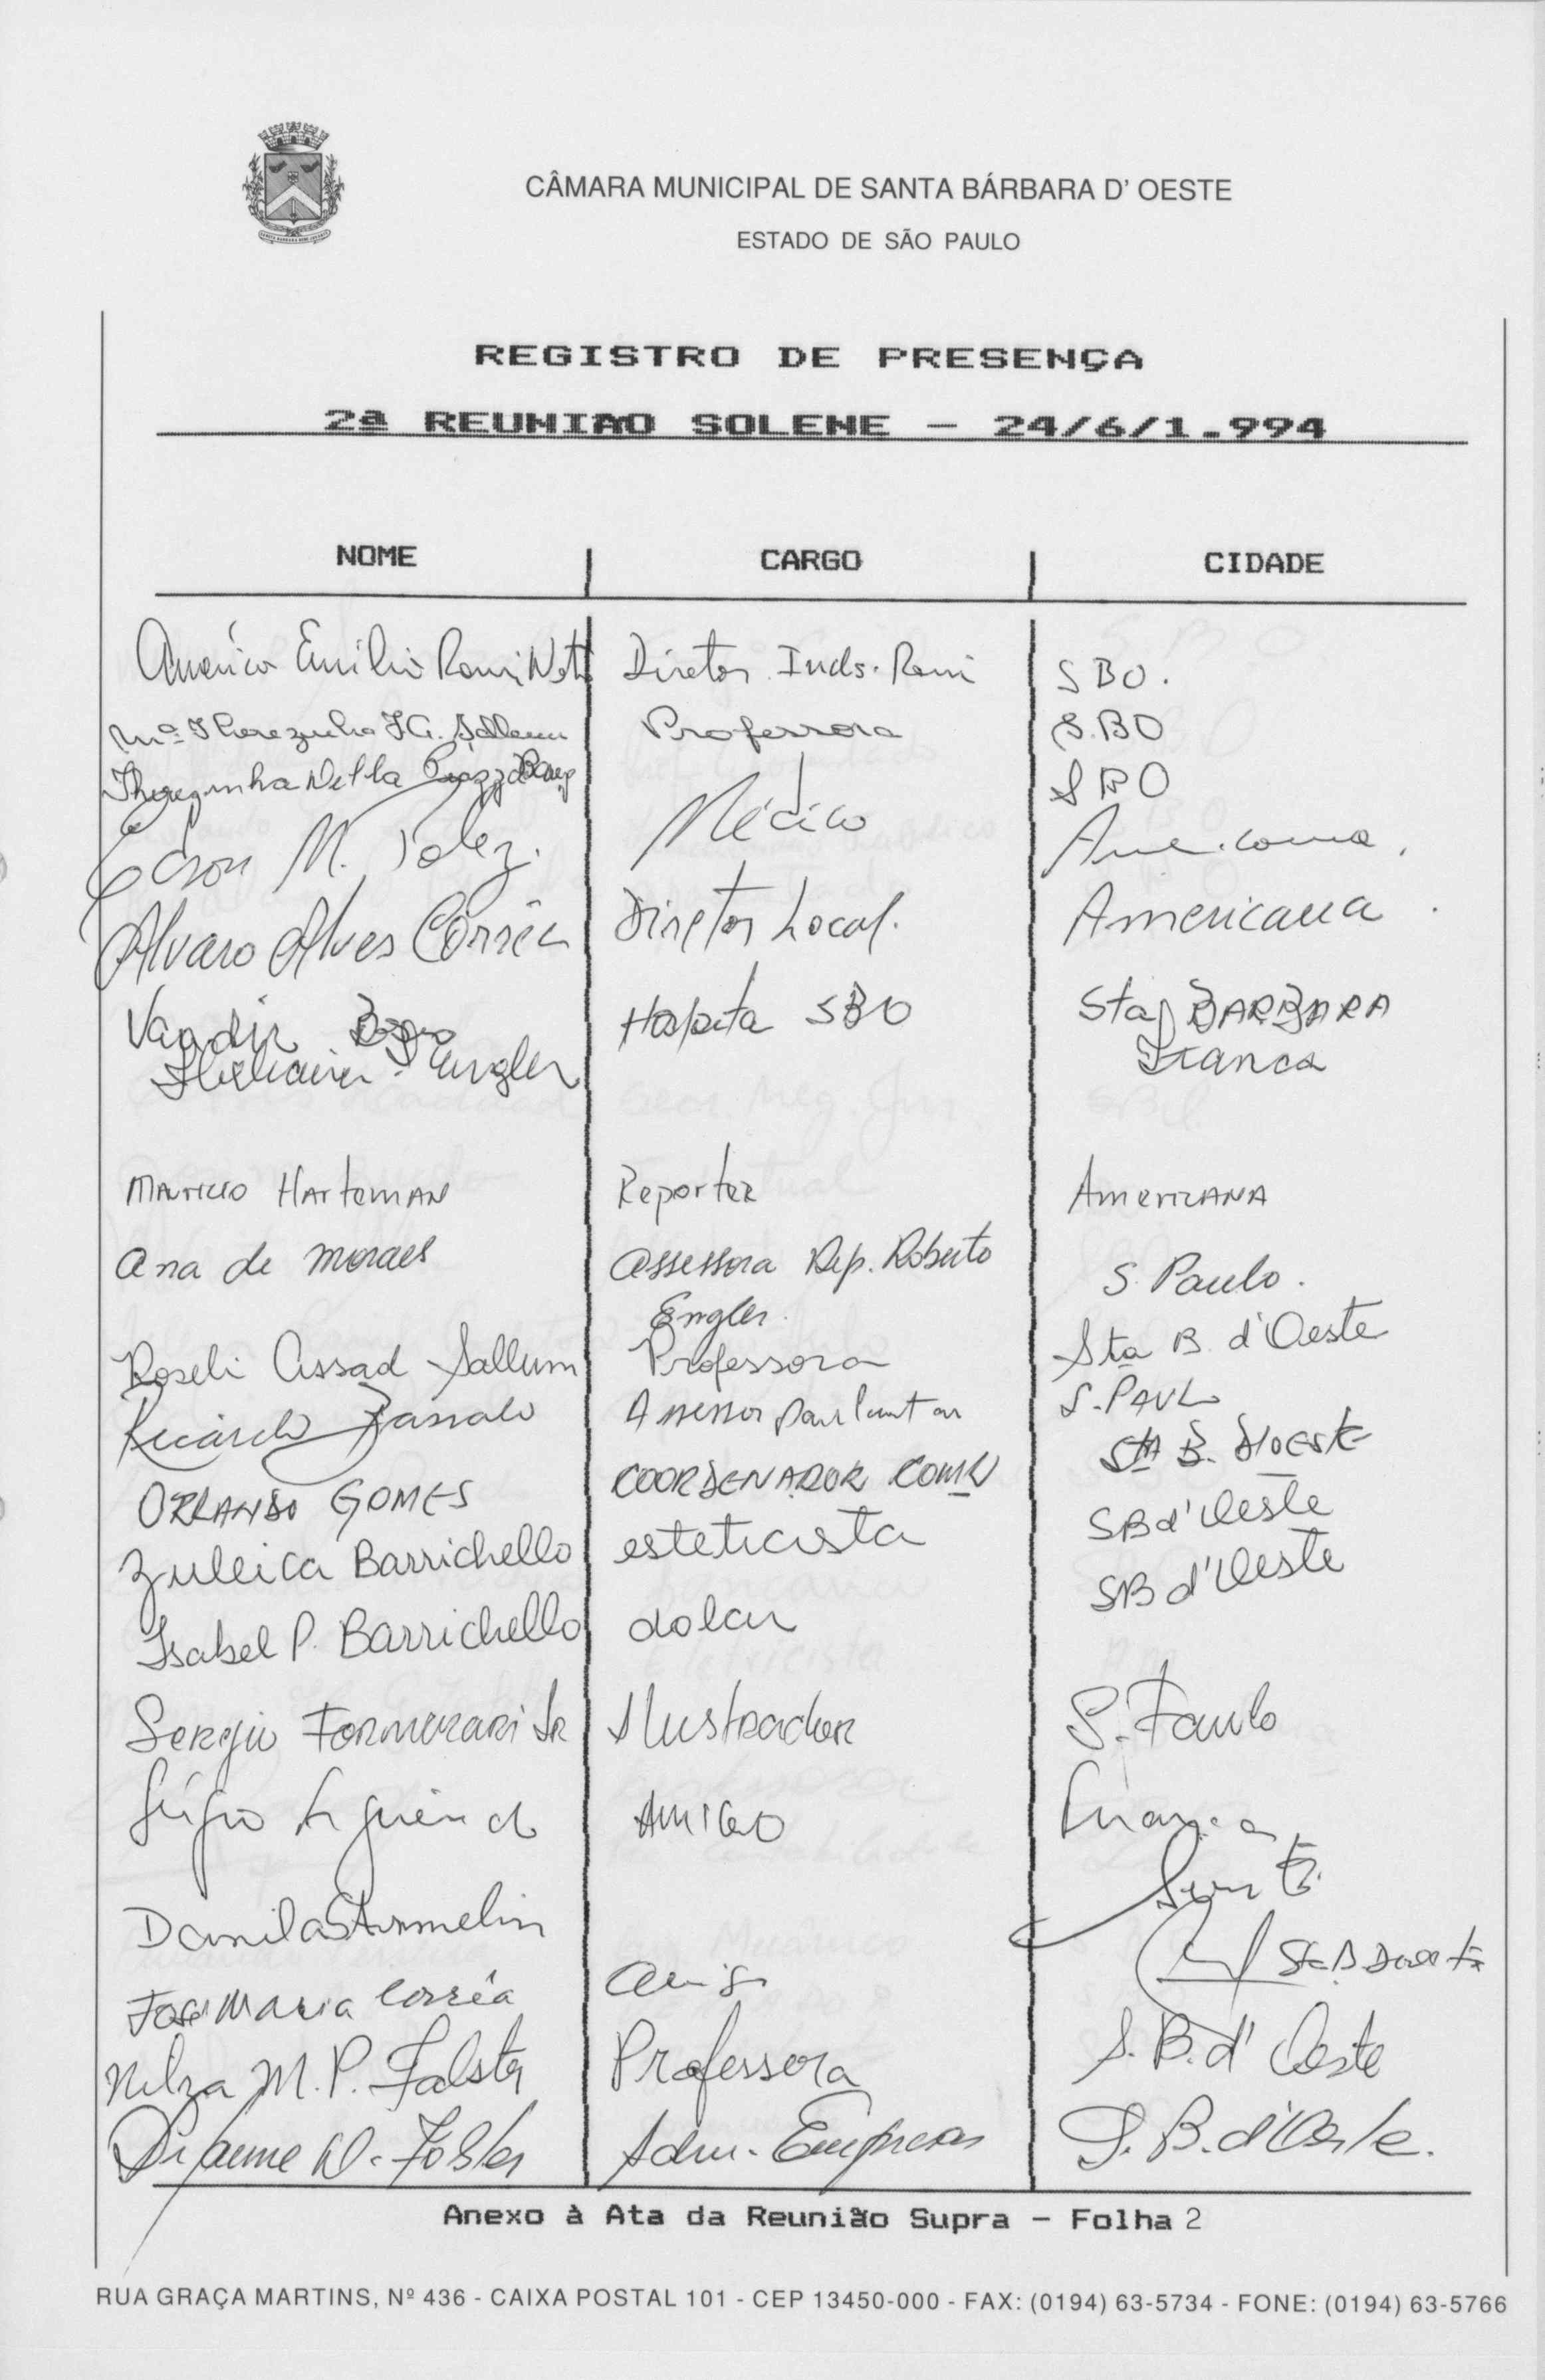 CÂMARA MUNICIPAL DE SANTA BÁRBARA D' OESTE
ESTADO DE SÃO PAULO
REGISTRO DE PRESENÇA
2ª REUNIÃO SOLENE - 24/6/1.994
NOME CARGO CIDADE
Américo Emílio Romi Neto Diretor Inds. Romi SBO.
Mª Therezinha J.G. Sallum Professora S.BO
Therezinha Della SBO
Edson M. Médico Americana.
Alvaro Alves Corrêa Diretor Local. Americana.
Vandir SBO Sta BARBARA
Engler Franca
MAURICIO HArtemAN Reporter AmericANA
Ana de Moraes Assessora Dep. Roberto S. Paulo.
Engler.
Roseli Assad Sallum Professora Sta B. d'Oeste
Ricardo Assessor Parlamentar S. PAULO
ORLANDO GOMES COORDENADOR Sta B. d'Oeste
Zuleica Barrichello esteticista SB d'Oeste
Isabel P. Barrichello dolar SB d'Oeste
Sergio Jr Ilustrador S. Paulo
AMIGO Franca
José Maria Corrêa amigo
Nilza M. P. Professora S. B. d' Oeste
W. Adm. Empresas S. B. d'Oeste.
Anexo à Ata da Reunião Supra - Folha 2
RUA GRAÇA MARTINS, Nº 436 - CAIXA POSTAL 101 - CEP 13450-000 - FAX: (0194) 63-5734 - FONE: (0194) 63-5766